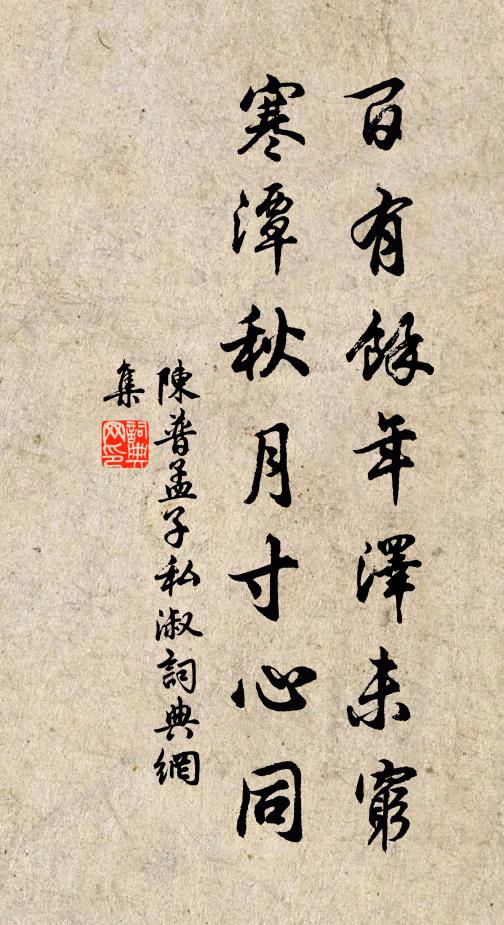 百有餘年澤未窮
寒潭秋月寸心同
陳普孟子私淑詞典網
集
詞典
网印